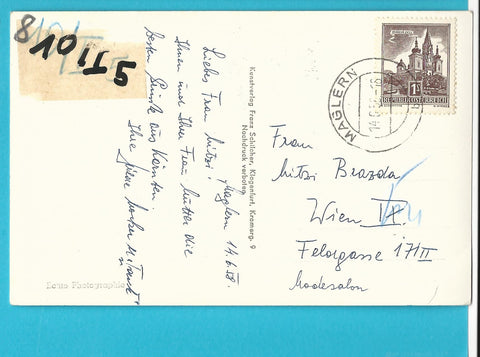 8
101I5
Maglern 14.6.58.
Liebe Frau Mitzi!
Ihnen und Ihrer Frau Mutter die
besten Grüße aus Kärnten
Ihre
u. Tante
Kunstverlag Franz Schilcher, Klagenfurt, Kramerg. 9
Nachdruck verboten
Echte Photographie
MAGLERN
REPUBLIK ÖSTERREICH
Frau
Mitzi Brazda
Wien IX
Felogasse 17/II
Modesalon